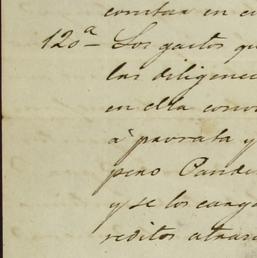 constan en
120ª— Los gastos qu
las diligenci
en ella conv
á prorata y
pero Pande
y se los carg
reditos atras